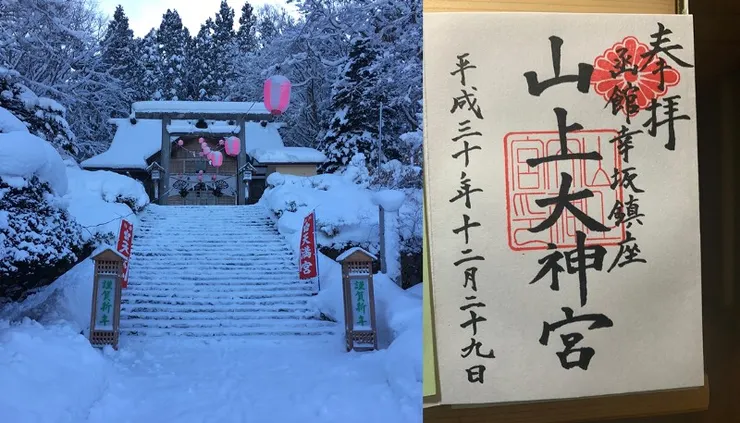 謹賀新年
天満宮
謹賀新年
奉拝
函館幸坂鎮座
山上大神宮
平成三十年十二月二十九日